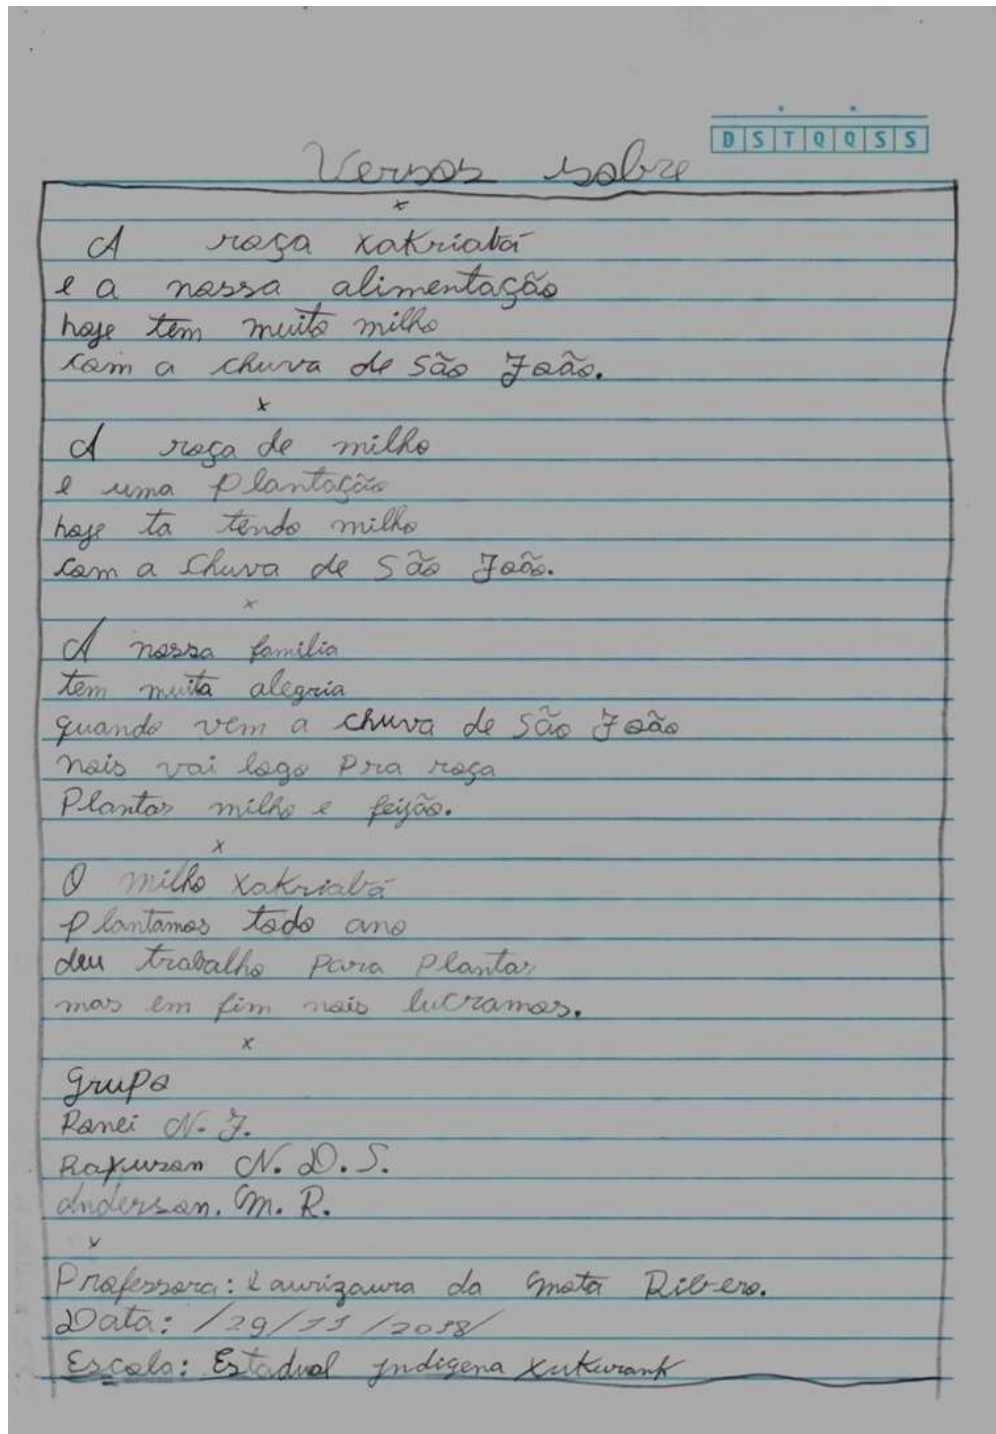 D S T Q Q S S
Versos sobre
x
A roça xakriabá
e a nossa alimentação
hoje tem muito milho
com a chuva de São João.
x
A roça de milho
e uma plantação
hoje ta tendo milho
com a chuva de São João.
x
A nossa familia
tem muita alegria
quando vem a chuva de São João
nois vai logo pra roça
Plantar milho e feijão.
x
O milho xakriabá
plantamos todo ano
deu trabalho para plantar
mas em fim nois lucramos.
x
grupo
Ranei N. J.
N. D. S.
Anderson. M. R.
x
Professora: Laurizaura da Mota Ribero.
Data: /29/11/2018/
Escola: Estadual indigena xukurank